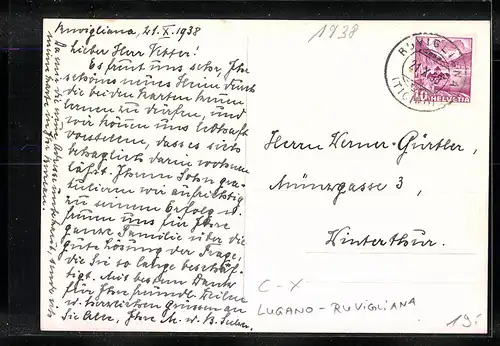 Ruvigliana, 21. X. 1938
Lieber Herr Vetter!
Es freut uns sehr, Ihr
schönes neues Heim durch
die beiden Karten kennen
lernen zu dürfen, und
wir können uns lebhaft
vorstellen, dass es sich
behaglich darin wohnen
lässt. Ihrem Sohn gra-
tulieren wir aufrichtig
zu seinem Erfolg u.
freuen uns für Ihre
ganze Familie über die
gute Lösung der Frage,
die Sie so lange beschäf-
tigt. Mit bestem Dank
für Ihre freundl. Zeilen
u. herzlichen Grüssen an
Sie Alle, Ihre M. u. B.
1938
RUVIGLIANA
(TICINO)
10 HELVETIA
Herrn Werner-Gürtler,
Münzgasse 3,
Winterthur.
C-X
LUGANO-RUVIGLIANA
19.-